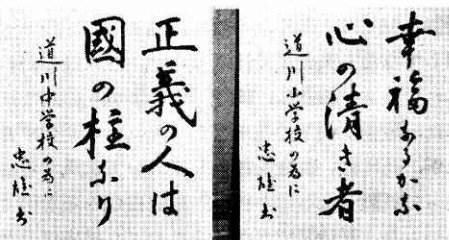 幸福なるかな
心の清き者
道川小学校の為に
忠雄書
正義の人は
國の柱なり
道川中学校の為に
忠雄書